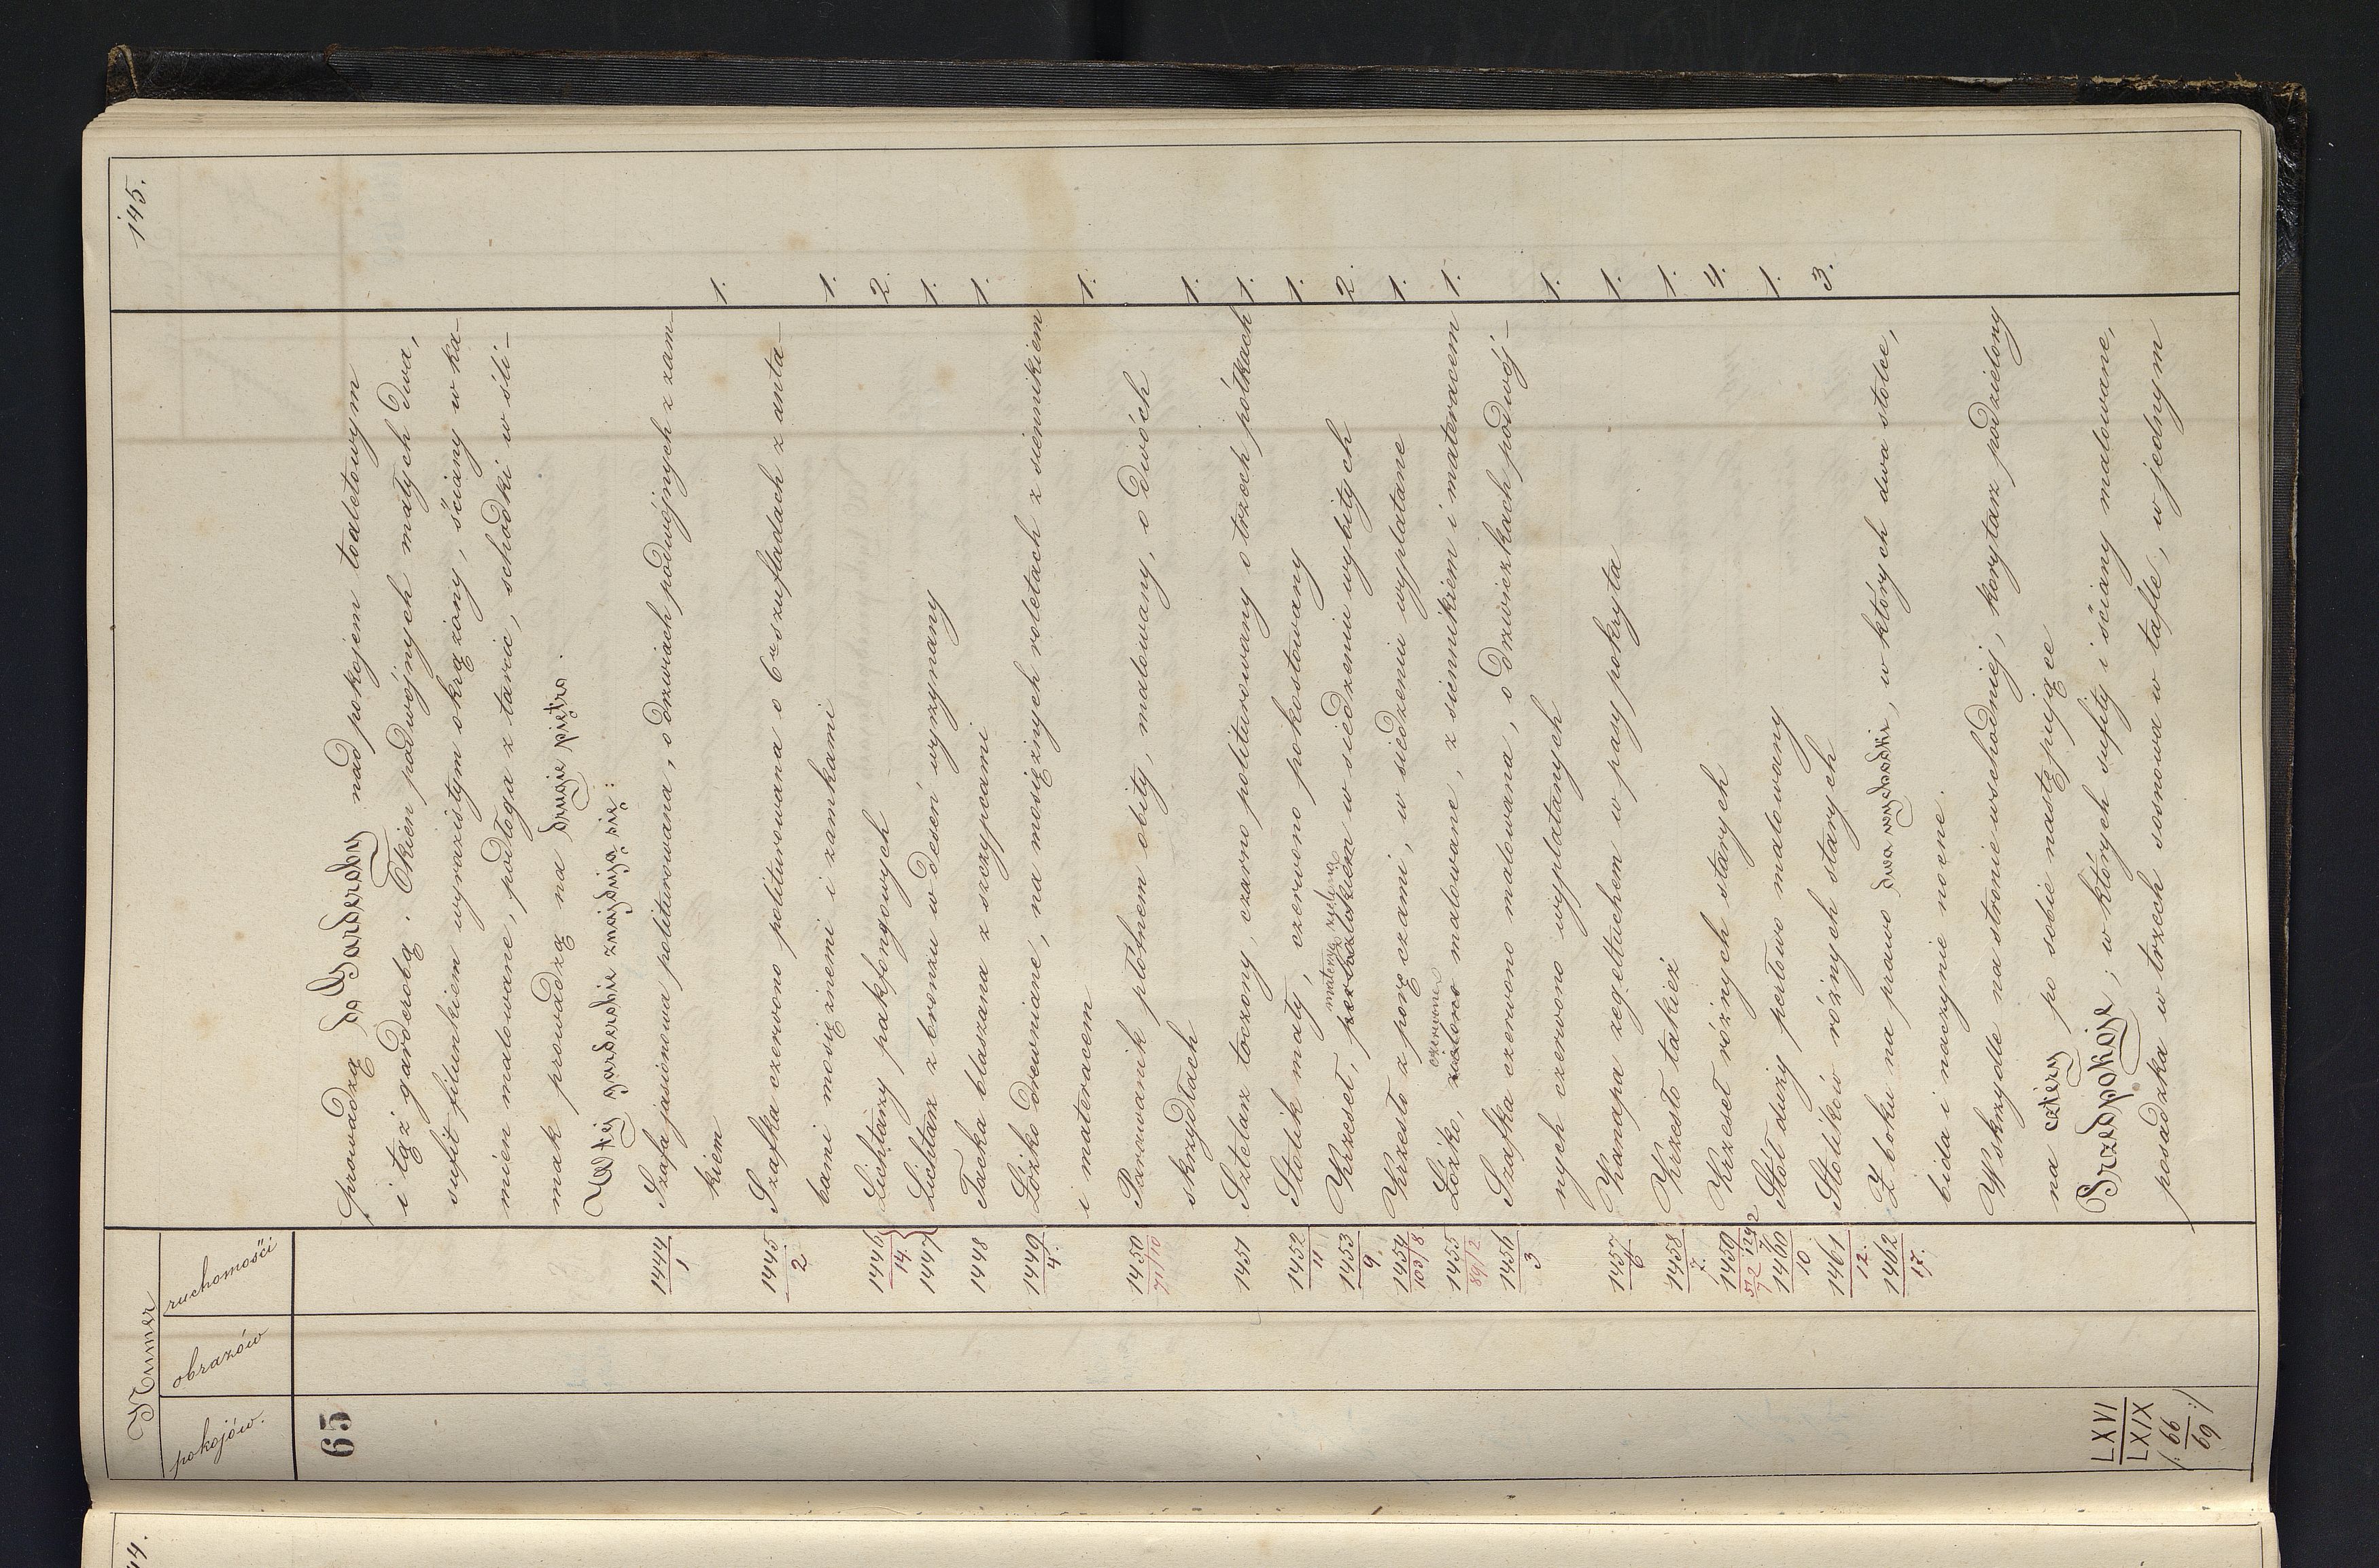 145.
Numer
pokojów. obrazów ruchomości
65 prowadzą do Garderoby nad pokojem toaletowym
i tąż garderobą. Okien podwójnych małych dwa,
sufit filunkiem wyrazistym okrążony, ściany w ka-
mien malowane, podłoga z tarcic, schodki w śli-
mak prowadzą na drugie piętro.
W tej garderobie znajduja się:
1444/1 Szafa jasionowa politurowana, o drzwiach podwójnych z zam-
kiem 1.
1445/2 Szafka czerwono politurowana o 6ciu szufladach z anta-
bami mosiężnemi i zamkami 1.
1446/14 Lichtarzy pakfongowych 2.
1447 Lichtarz z bronzu w deseń wyrzynany 1.
1448 Tacka blaszana z szczypcami 1.
1449/4. Łóżko drewniane, na mosiężnych roletach z siennikiem
i materacem 1.
1450 71/10 Parawanik płótnem obity, malowany, o dwóch
skrzydłach 1.
1451 Sztelarz toczony, czarno politurowany o trzech pólkach 1.
1452/11 Stolik mały, czerwono pokostowany 1.
materyą zieloną
1453/9. Krzeseł, perkalikiem w siedzeniu wybitych 2.
1454 103/8 Krzesło z poręczami, w siedzeniu wyplatane 1.
czerwone
1455 89/2 Łóżko, zielono malowane, z siennikiem i materacem 1.
1456/3 Szafka czerwono malowana, o drzwiczkach podwój-
nych czerwono wyplatanych 1.
1457/6 Kanapa zegeltuchem w pasy pokryta 1.
1458/7. Krzesło takież 1.
1459 Krzeseł różnych starych 4.
1460/10 Stół duży perłowo malowany 1.
1461/12. Stolików różnych starych 3.
1462/17. Z boku na prawo dwa wychodki, w których dwa stolce,
bida i naczynie nocne.
W skrzydle na stronie wschodniej, korytarz podzielony
na cztéry po sobie następujące
LXVI/LXIX /: 66/69 :/ Przedpokoje; w których sufity i ściany malowane,
posadzka w trzech sosnowa w tafle, w jednym